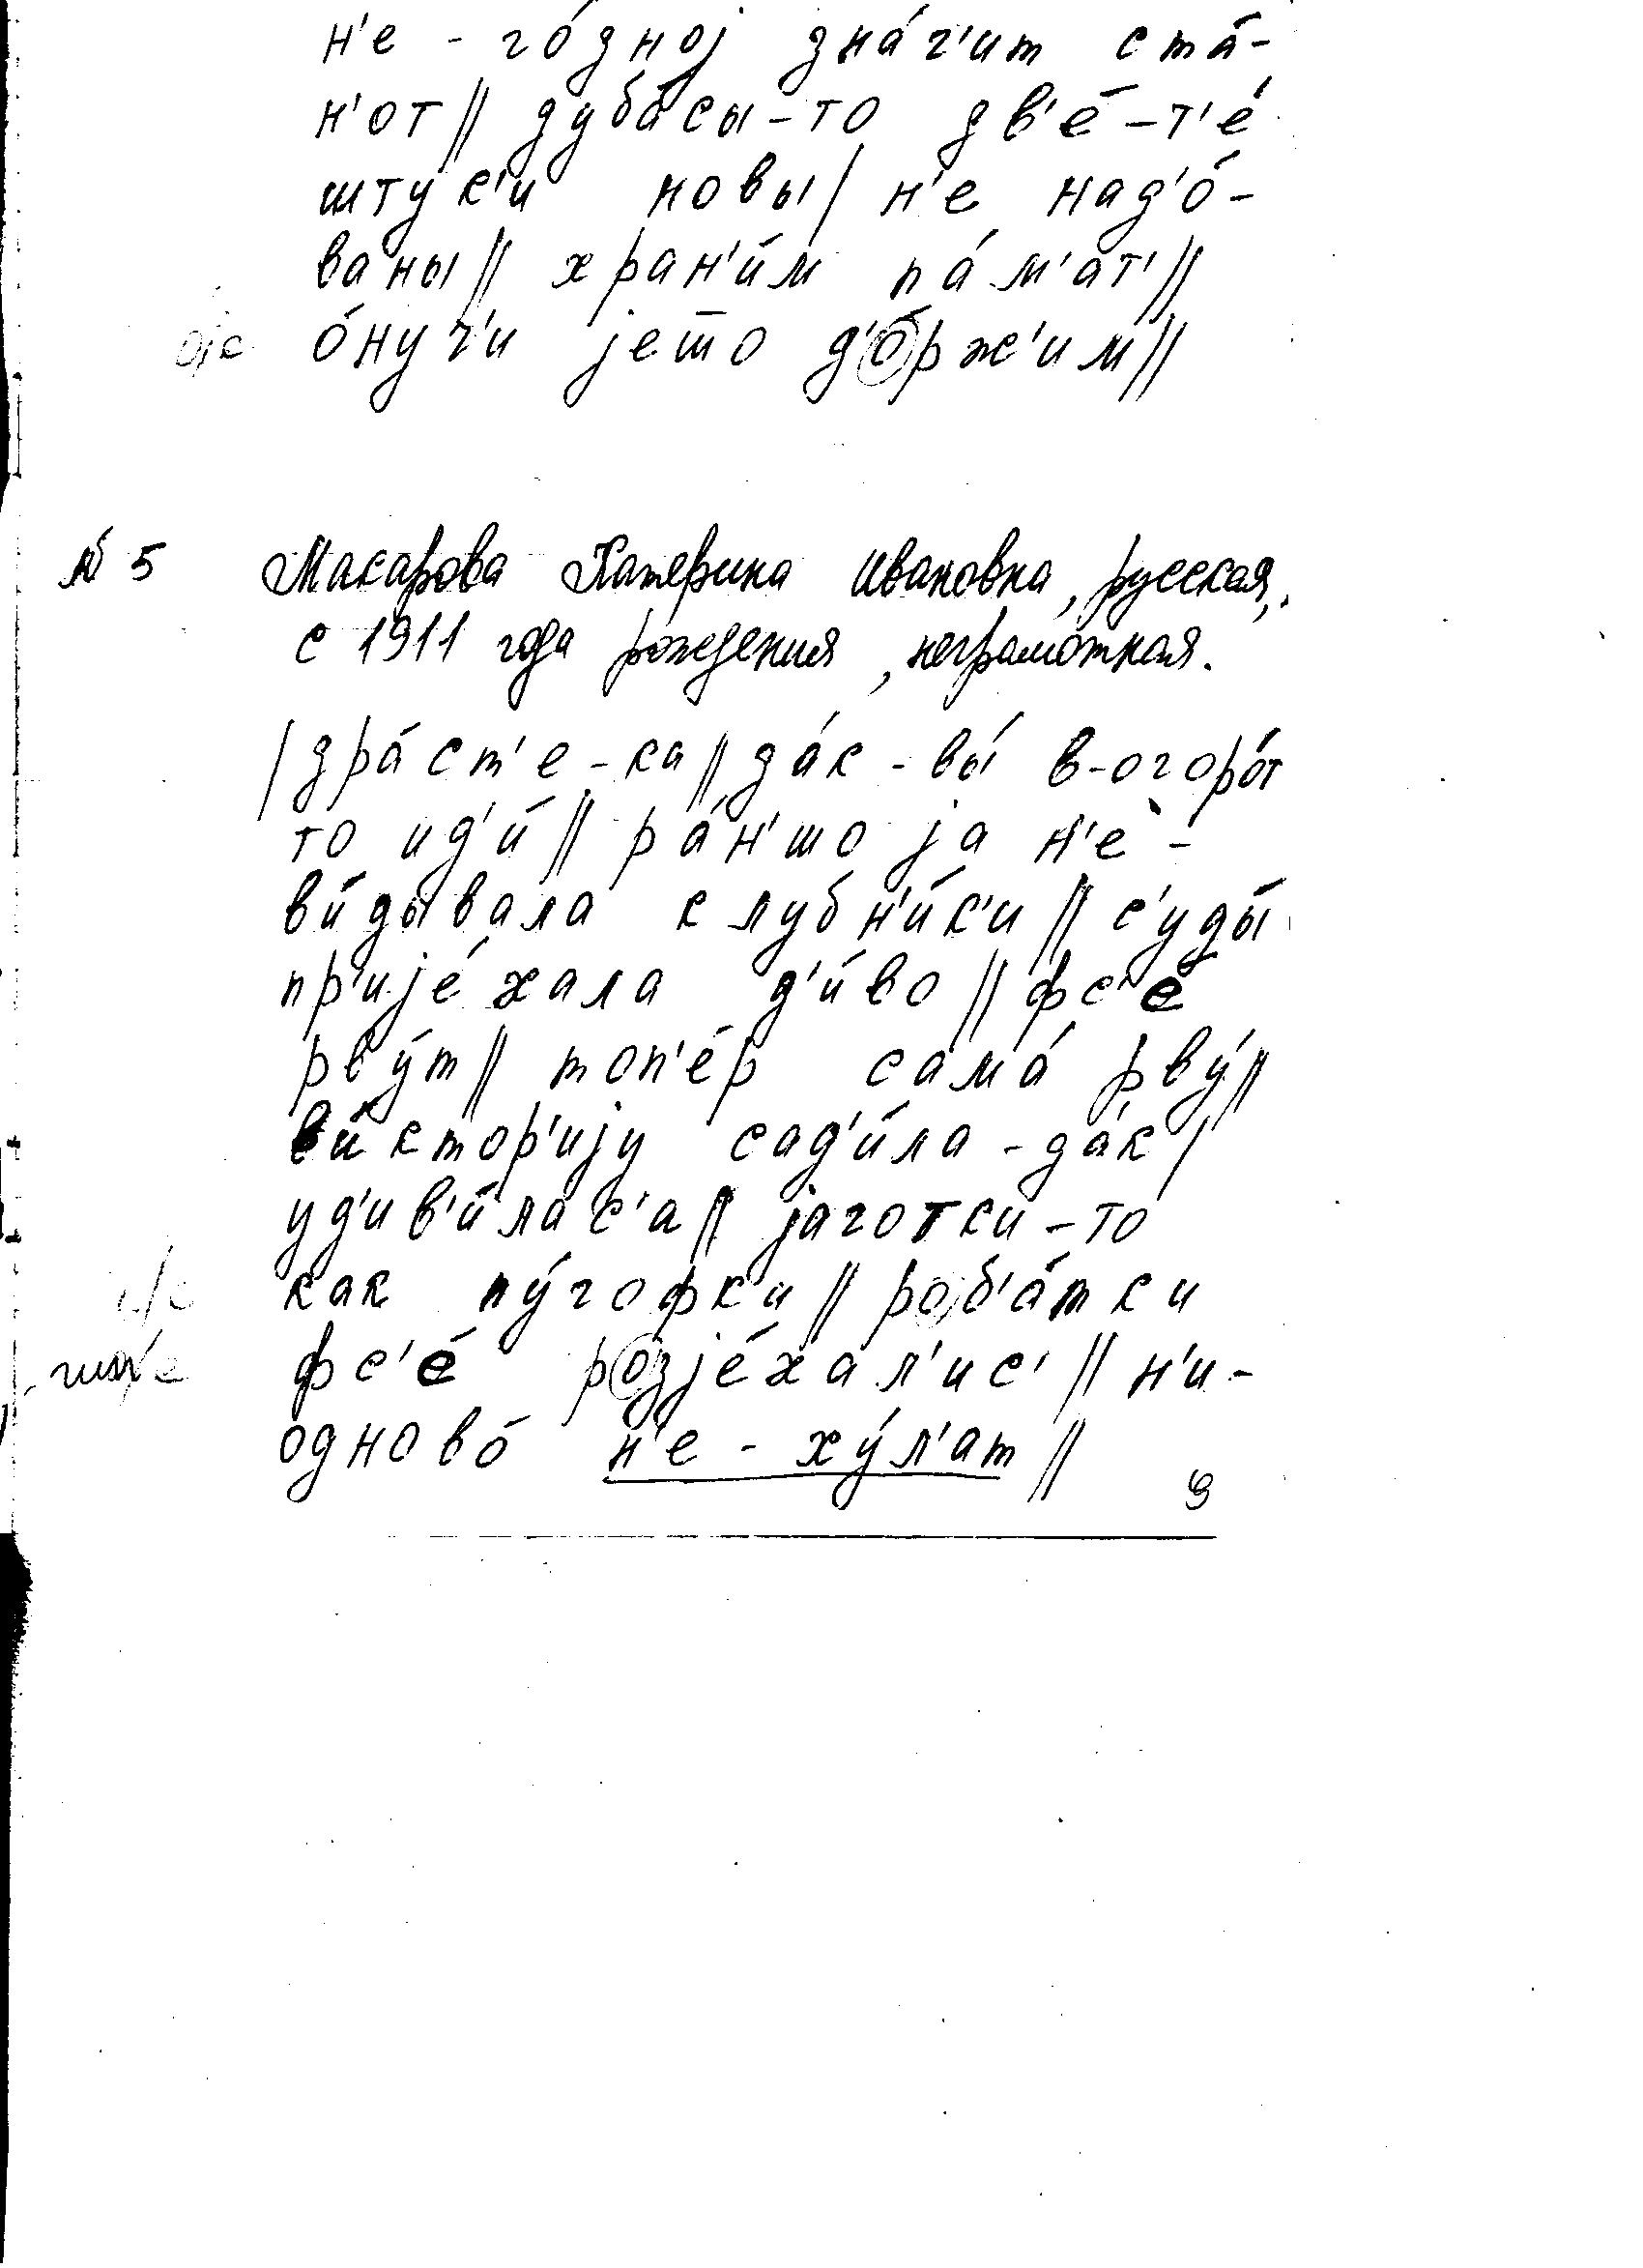 н'е - го́дној зна́ч'ит ста́-
н'от || дуба́сы-то дв'е́-т'е́
штук'и новы | н'е над'о́-
ваны || хран'и́м па́м'ат' ||
о́нуч'и јето д'о́рж'им ||
№ 5 Макарова Катерина Ивановна, русская,
с 1911 года рождения, неграмотная.
| дра́ст'е-ка || да́к-вы́ в-огоро́т
то ид'и́ || ра́н'шо ја н'е-
ви́дывала клубн'и́к'и || с'уды́
пр'ије́хала д'и́во || фс'е́
рву́т || топ'е́р сама́ рву́ ||
ви́ктор'ију сад'и́ла-да́к |
уд'ив'и́лас'а || јаготки-то
как пу́гофк'и || роб'а́тки
фс'е́ розје́хал'ис' || н'и-
одново́ н'е-ху́л'ат ||
9